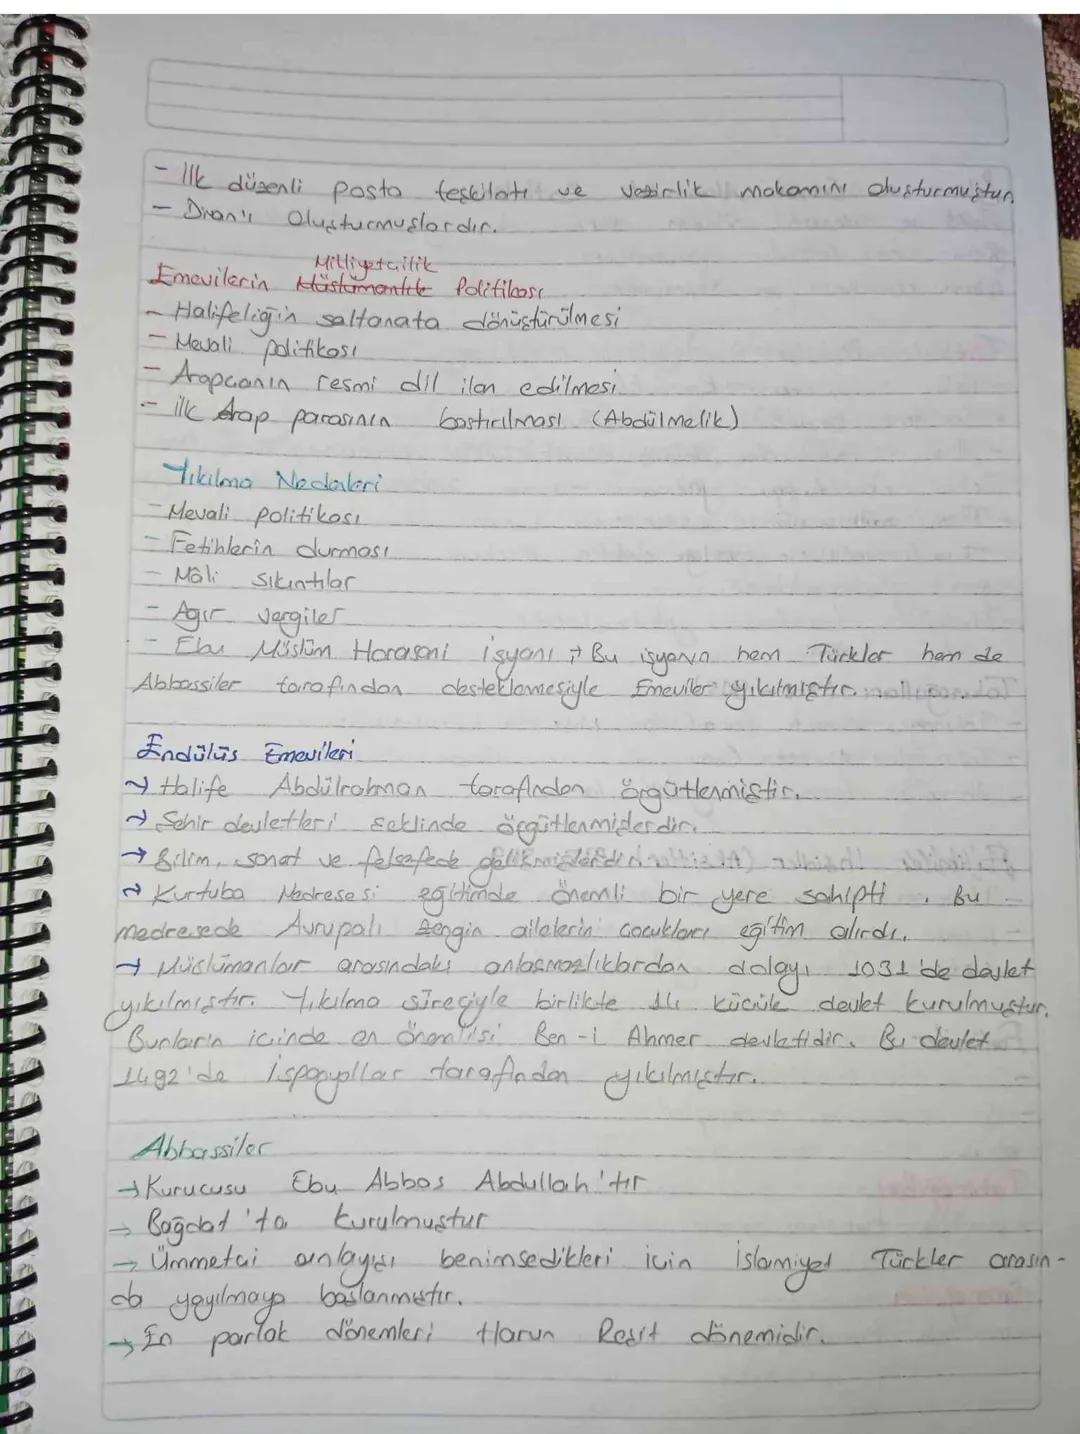 - İlk düzenli posta teşkilatı ve vezirlik makamını oluşturmuştur.
- Divan'ı Oluşturmuşlardır.
Milliyetcilik
Emevilerin Müslümanlık Politikası
- Halifeliğin saltanata dönüştürülmesi
- Mevali politikası
- Arapcanın resmi dil ilan edilmesi
- ilk Arap parasının bastırılması (Abdülmelik)
Yıkılma Nedenleri
- Mevali politikası
- Fetihlerin durması
- Mâli sıkıntılar
- Ağır vergiler
- Ebu Müslüm Horasani isyanı → Bu isyanın hem Türkler hem de
Abbassiler tarafından desteklemesiyle Emeviler yıkılmıştır.
Endülüs Emevileri
→ Halife Abdülrahman tarafından örgütlenmiştir.
→ Şehir devletleri şeklinde örgütlenmişlerdir.
→ Bilim, sanat ve felsefede gelişmişlerdir.
→ Kurtuba Medresesi eğitimde önemli bir yere sahipti. Bu
medresede Avrupalı zengin ailelerin cocukları eğitim alırdı.
→ Müslümanlar arasındaki anlaşmazlıklardan dolayı 1031'de devlet
yıkılmıştır. Yıkılma süreciyle birlikte 14 kücük devlet kurulmuştur.
Bunların icinde en önemlisi Ben-i Ahmer devletidir. Bu devlet
1492'de İspanyollar tarafından yıkılmıştır.
Abbassiler
→ Kurucusu Ebu Abbas Abdullah'tır
→ Bağdat'ta kurulmuştur
→ Ümmetci anlayışı benimsedikleri icin İslamiyet Türkler arasın-
da yayılmaya başlanmıştır.
→ En parlak dönemleri Harun Reşit dönemidir.